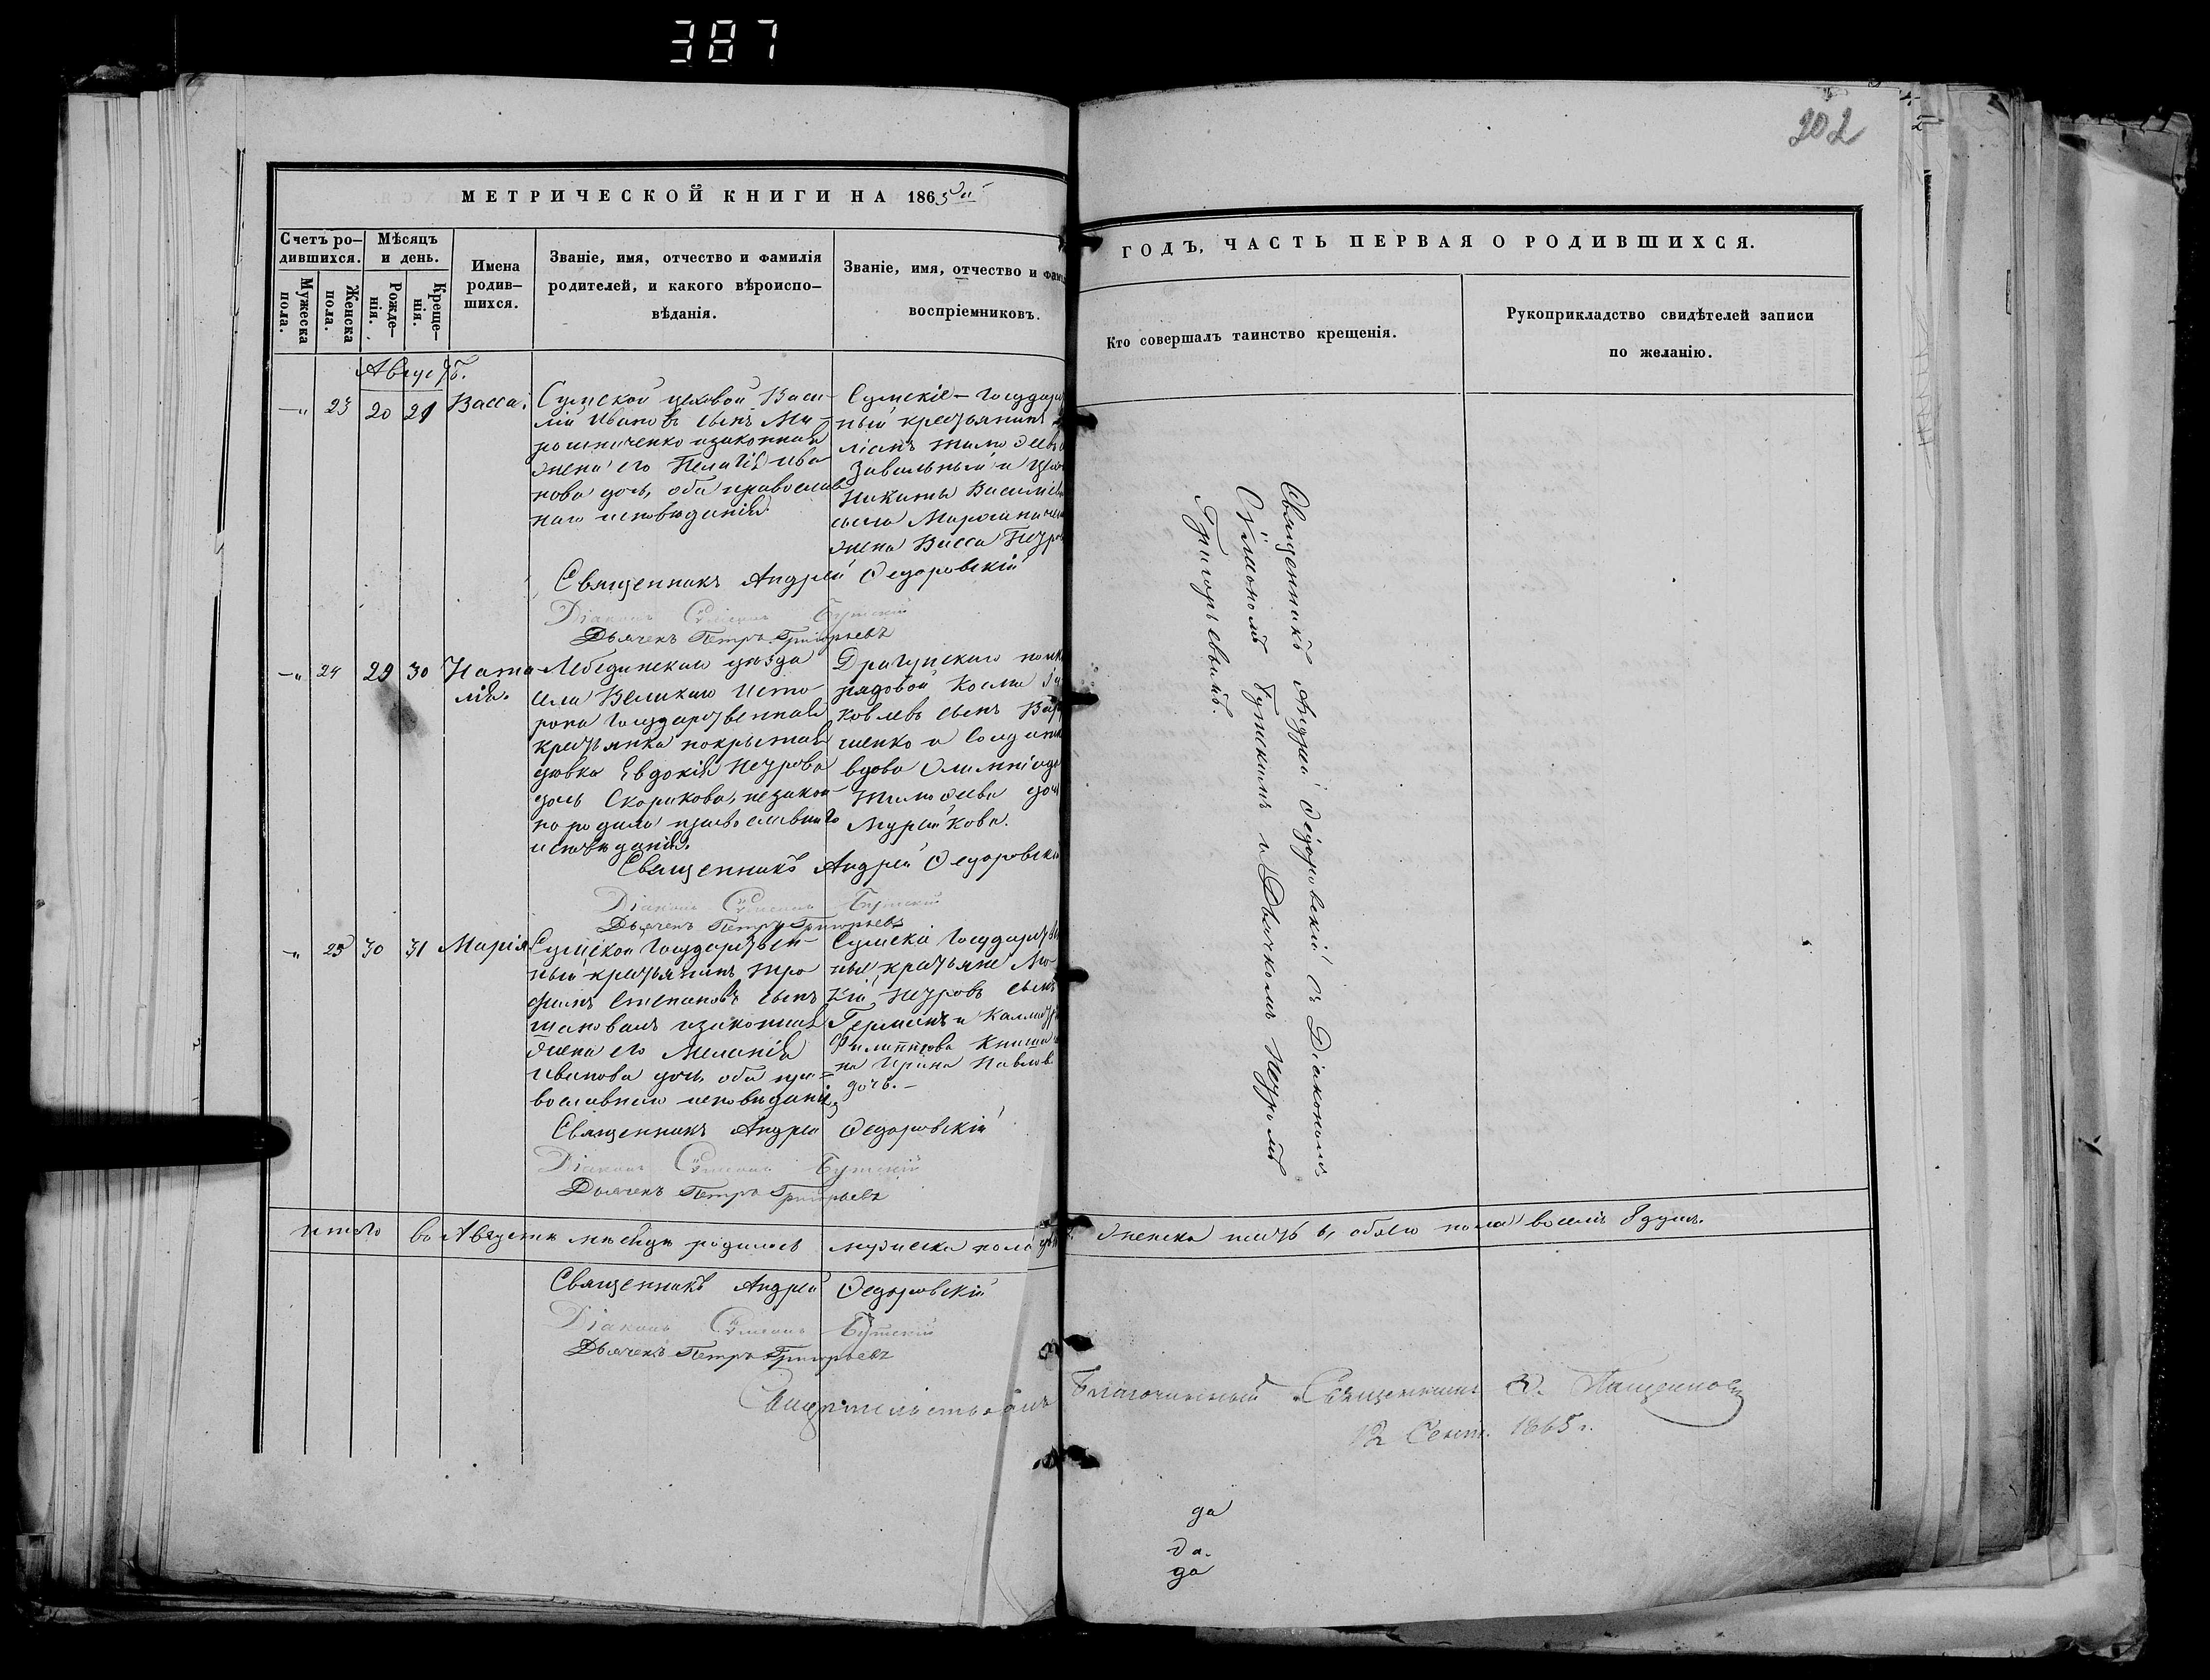 387
202
МЕТРИЧЕСКОЙ КНИГИ НА 1865й
ГОДЪ, ЧАСТЬ ПЕРВАЯ О РОДИВШИХСЯ.
Счетъ ро-
дившихся.
Мужеска
пола.
Женска
пола.
Мѣсяцъ
и день.
Рожде-
нія.
Креще-
нія.
Имена
родив-
шихся.
Званіе, имя, отчество и фамилія
родителей, и какого вѣроиспо-
вѣданія.
Званіе, имя, отчество и фами
воспріемниковъ.
Кто совершалъ таинство крещенія.
Рукоприкладство свидѣтелей записи
по желанію.
Августъ.
23 20 21 Васса.
Сумской цеховой Васи-
лій Ивановъ сынъ Ми-
рошниченко и законная
жена его Пелагія Ива-
нова дочь, оба православ
наго исповѣданія.
Сумскіе Государс
ный крестьянинъ
Тимофеевъ
Завальный и
Никиты Василіева
сына
жена Васса Петров
Священникъ Андрей Ѳедоровскій
Діаконъ Сѵмеонъ Бутскій
Дьячекъ Петръ Григорьевъ
24 29 30 Ната
лія.
Лебединскаго уѣзда
села Великаго Исто-
ропа Государственная
крестьянка покрытая
дѣвка Евдокія Петрова
дочь Скорикова, незакон
но родила православнаго
исповѣданія.
Драгунскаго полка
рядовой Косма Іа
ковлевъ сынъ
шенко и Солдатка
вдова Олимпіада
Тимофеева доч
Священникъ Андрей Ѳедоровскій
Діаконъ Сѵмеонъ Бутскій
Дьячекъ Петръ Григорьевъ
25 30 31 Марія
Сумской Государствен-
ный крестьянинъ Тро
фимъ Степановъ сынъ
Шаповалъ и законная
жена его Меланія
Иванова дочь, оба пра-
вославнаго исповѣданія,
Сумскіе Государствен
ные крестьяне Лу-
кій Петровъ сынъ
и
Филиппова
на Ирина Павлов.
дочь.
Священникъ Андрей Ѳедоровскій
Діаконъ Сѵмеонъ Бутскій
Дьячекъ Петръ Григорьевъ
Священникъ Андрей Ѳедоровскій съ Діакономъ
Сѵмеономъ Бутскимъ и Дьячкомъ Петромъ
Григорьевымъ.
Итого въ Августѣ мѣсяцѣ родилось мужеска пола женска шесть 6, обоего пола восемь 8 душъ.
Священникъ Андрей Ѳедоровскій
Діаконъ Сѵмеонъ Бутскій
Дьячекъ Петръ Григорьевъ
Благочинный Священникъ
12 Сент. 1865 г.
да
да.
да